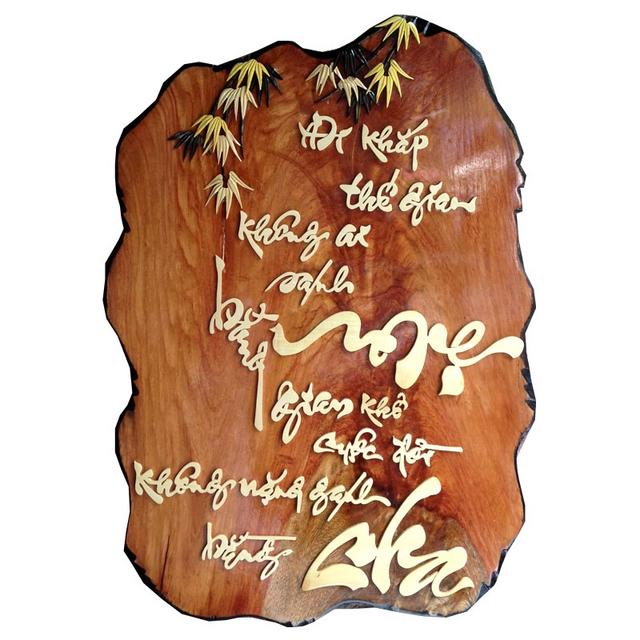 Đi khắp
thế gian
không ai
sánh
bằng mẹ
gian khổ
cuộc đời
không nặng gánh
bằng cha